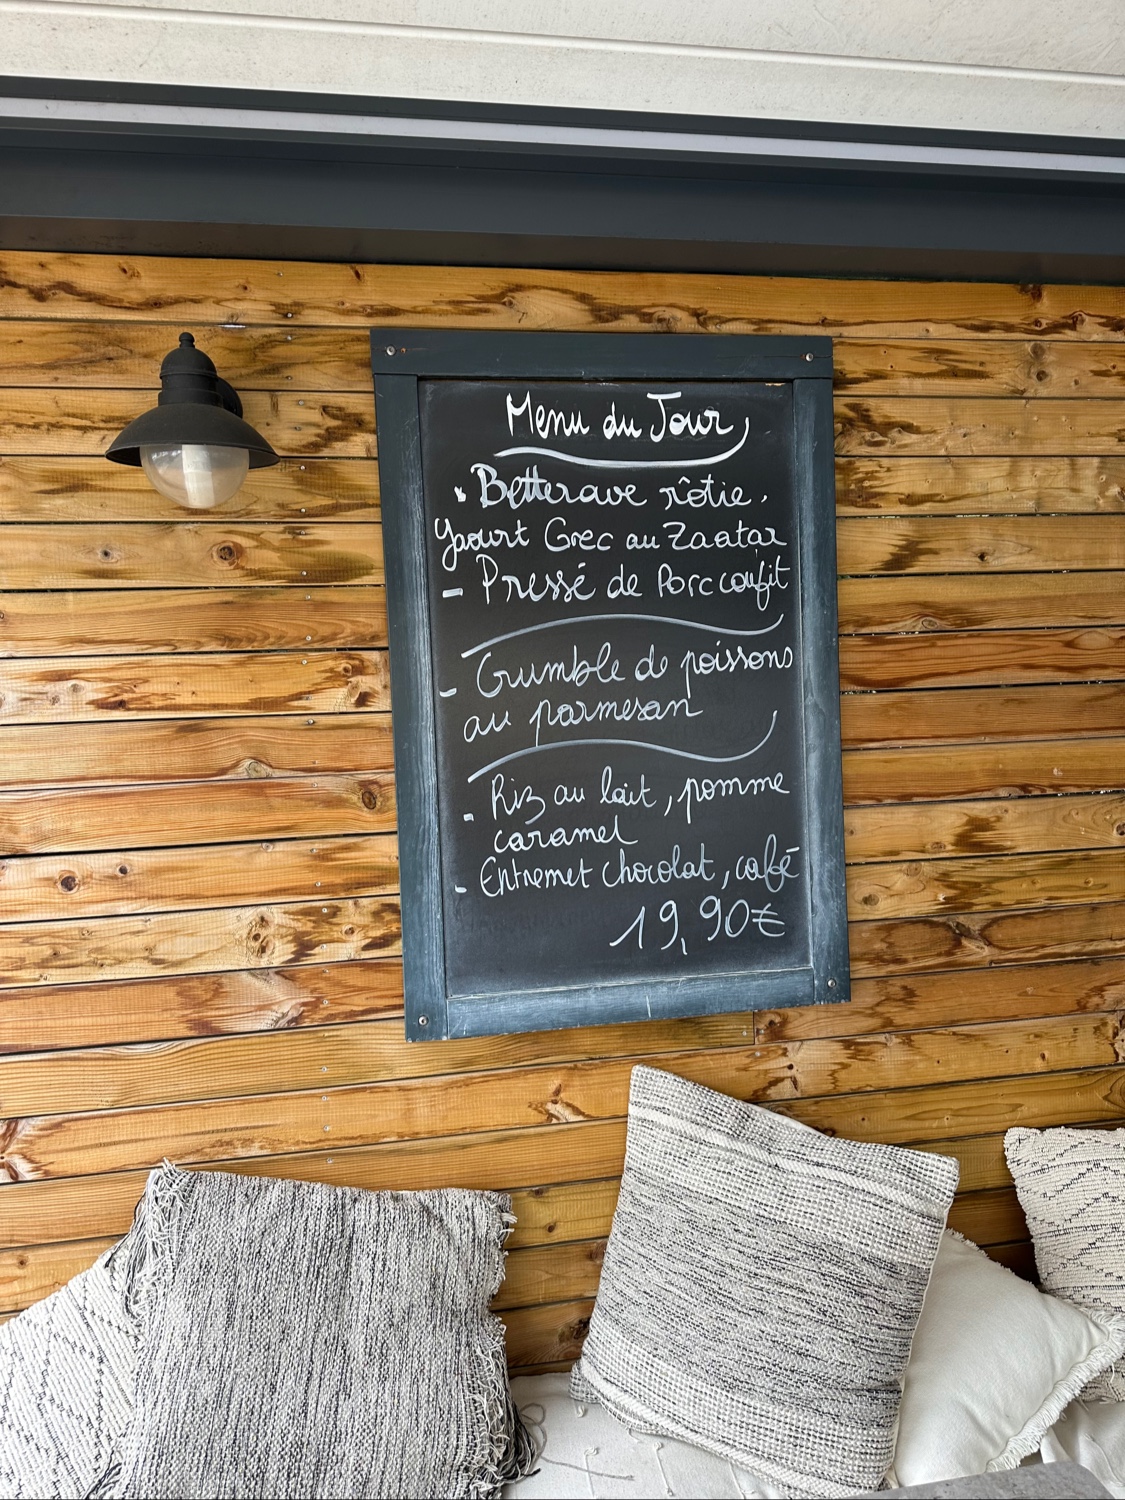 Menu du Jour
- Betterave rôtie,
Yaourt Grec au Zaatar
- Pressé de Porc confit
- Crumble de poissons
au parmesan
- Riz au lait, pomme
caramel
- Entremet chocolat, café
19,90€